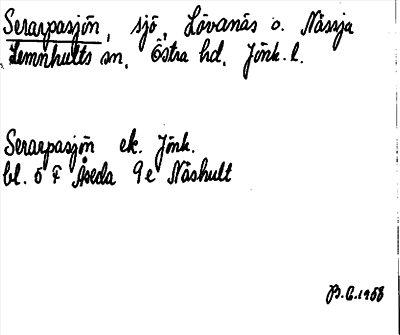 Serarpasjön, sjö, Lövanäs o. Nässja
Lemnhults sn. Östra hd. Jönk. l.
Serarpasjön ek. Jönk.
bl. 5 F Åseda 9e Näshult
B.G. 1958